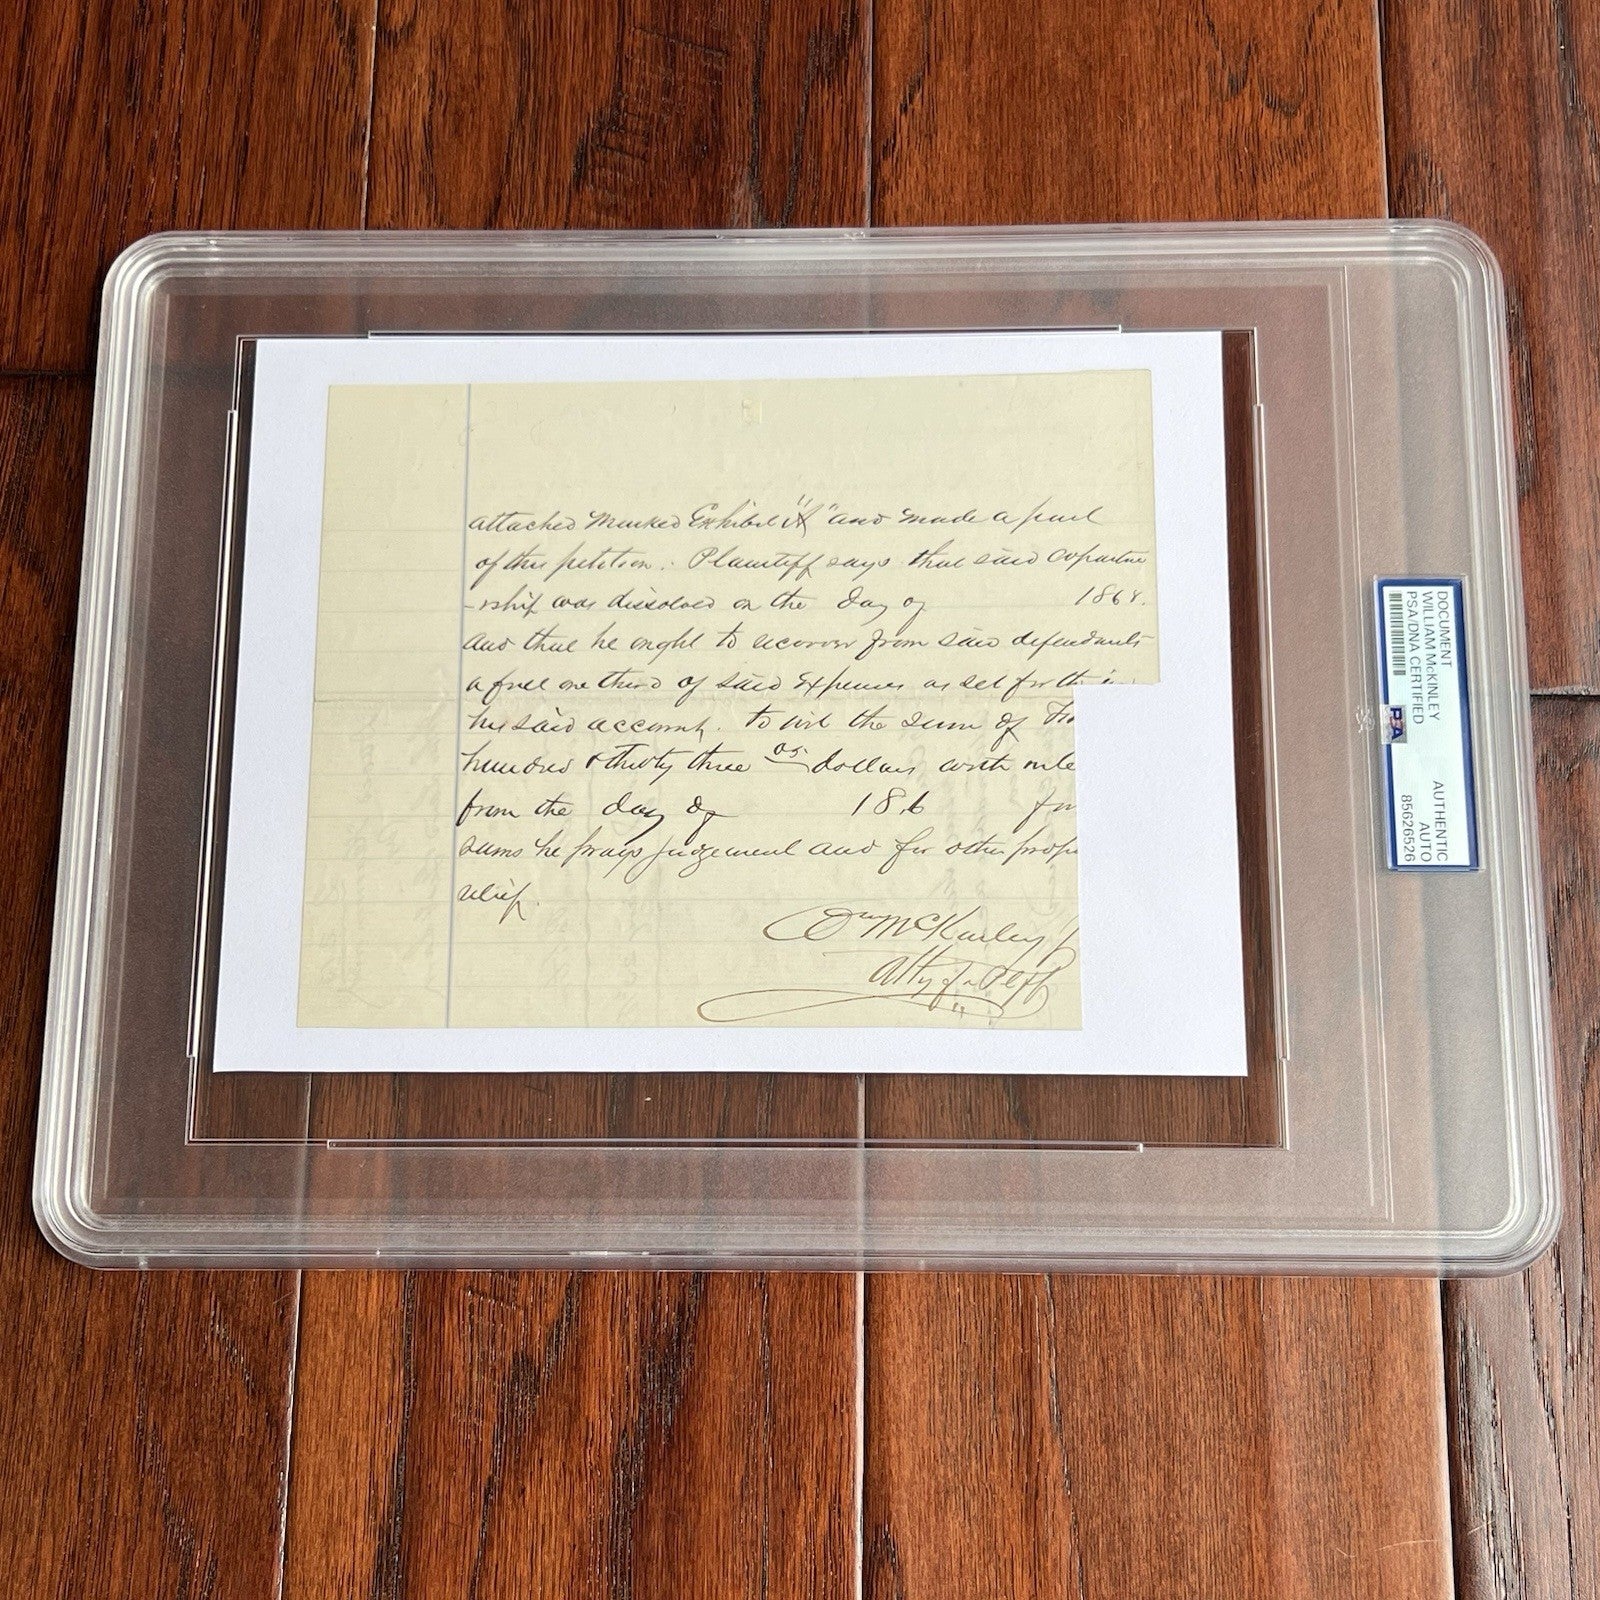 attached marked Exhibit "A" and made a part
of this petition. Plaintiff says that said copartner
-ship was dissolved on the day of 1868.
and that he ought to recover from said defendants
a full one third of said Expenses as set forth in
his said account. to wit the sum of
hundred & thirty three 05 dollars with inte
from the day of 186 for
sums he prays judgement and for other prope
relief.
Wm McKinley J
Atty for Plff
DOCUMENT
WILLIAM McKINLEY
PSA/DNA CERTIFIED
AUTHENTIC
AUTO
85626526
PSA